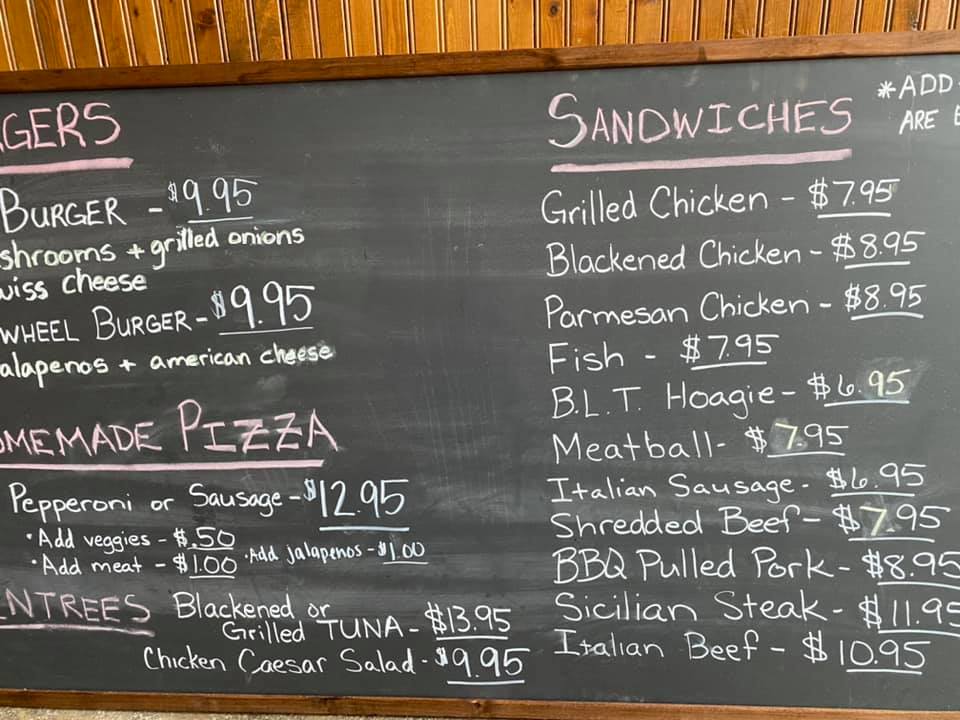 GERS
BURGER - $9.95
shrooms + grilled onions
wiss cheese
WHEEL BURGER - $9.95
alapenos + american cheese
OMEMADE PIZZA
Pepperoni or Sausage - $12.95
• Add veggies - $.50
• Add meat - $1.00 • Add jalapenos - $1.00
NTREES Blackened or
Grilled TUNA - $13.95
Chicken Caesar Salad - $9.95
SANDWICHES
*ADD
ARE
Grilled Chicken - $7.95
Blackened Chicken - $8.95
Parmesan Chicken - $8.95
Fish - $7.95
B.L.T. Hoagie - $6.95
Meatball - $7.95
Italian Sausage - $6.95
Shredded Beef - $7.95
BBQ Pulled Pork - $8.95
Sicilian Steak - $11.95
Italian Beef - $10.95